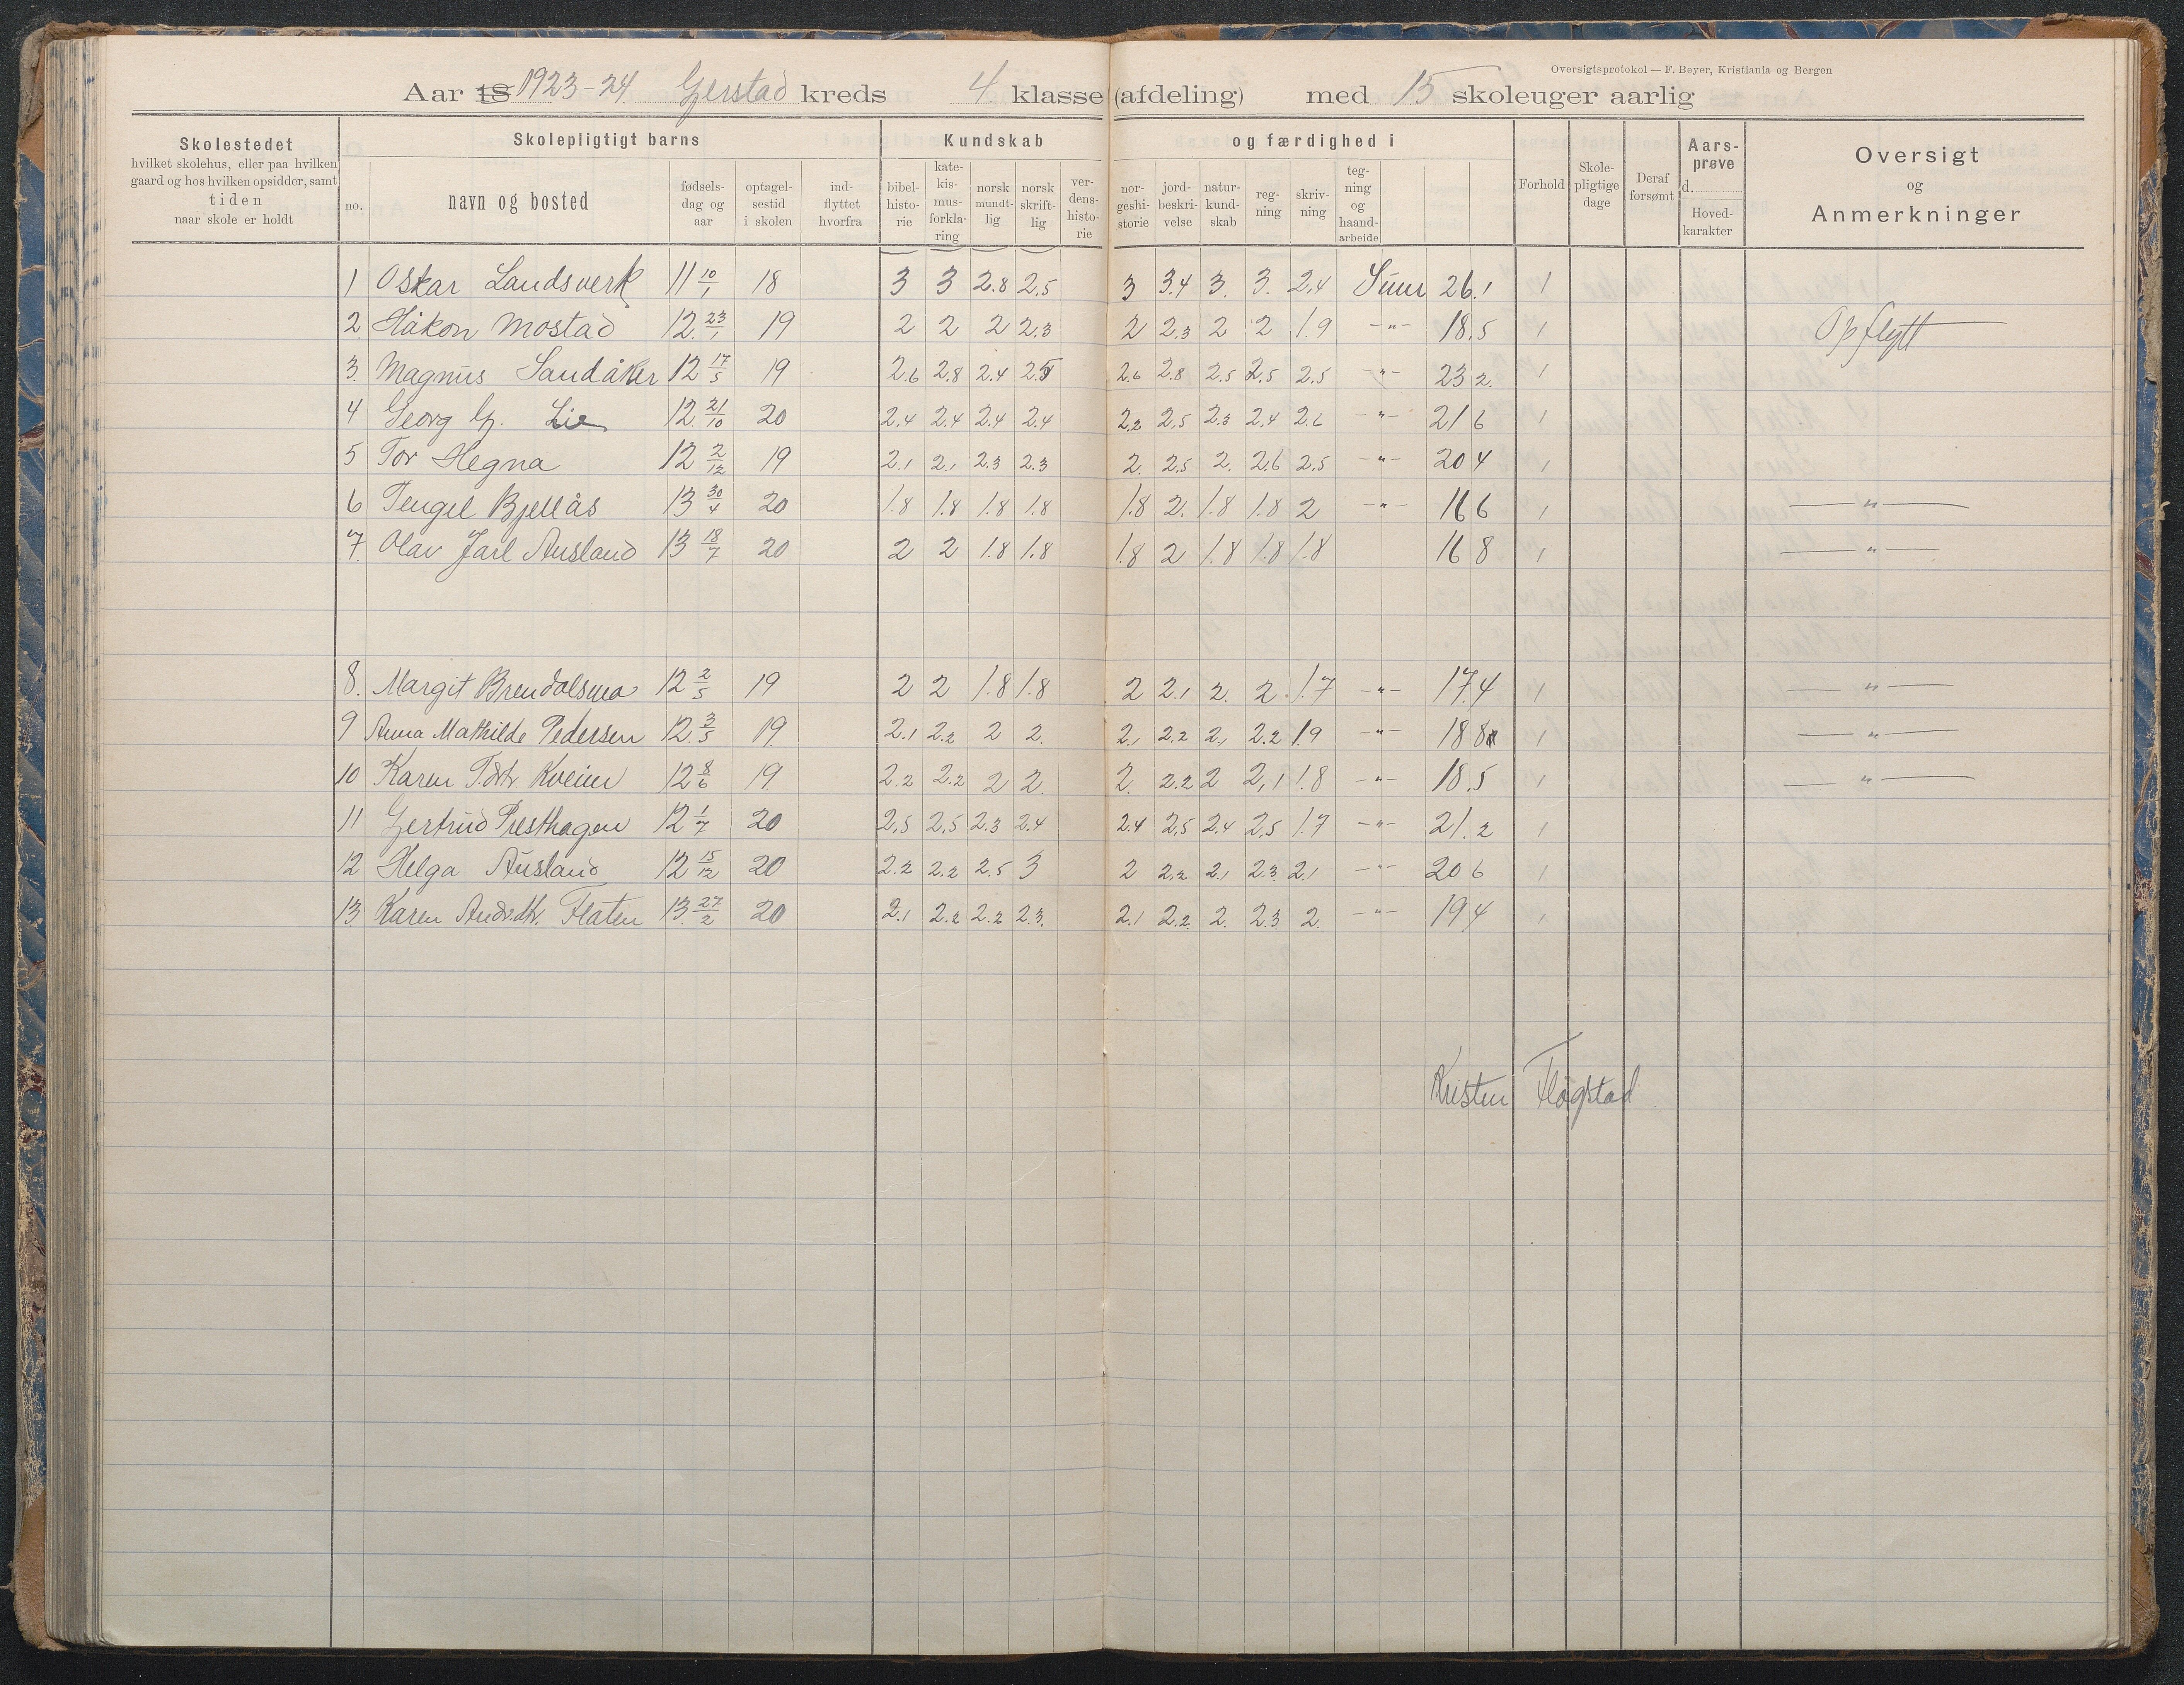 Oversigtsprotokol — F. Beyer, Kristiania og Bergen
Aar 18 1923-24 Gjerstad kreds 4. klasse (afdeling) med 15 skoleuger aarlig
Skolestedet
hvilket skolehus, eller paa hvilken
gaard og hos hvilken opsidder, samt
tiden
naar skole er holdt
Skolepligtigt barns
no. navn og bosted fødsels-dag og aar optagel-sestid i skolen ind-flyttet hvorfra
Kundskab og færdighed i
bibel-histo-rie kate-kis-mus-forkla-ring norsk mundt-lig norsk skrift-lig ver-dens-histo-rie nor-geshi-storie jord-beskri-velse natur-kund-skab reg-ning skriv-ning teg-ning og haand-arbeide
Forhold Skole-pligtige dage Deraf forsømt Aars-prøve d. Hoved-karakter
Oversigt
og
Anmerkninger
1 Oskar Landsverk 11 10/1 18 3 3 2.8 2.5 3 3.4 3. 3. 2.4 Sum 26.1 1
2. Håkon Mostad 12. 23/1 19 2 2 2 2.3 2 2.3 2 2 1.9 -"- 18.5 1 Opflytt
3. Magnus Sandåker 12 17/5 19 2.6 2.8 2.4 2.5 2.6 2.8 2.5 2.5 2.5 -"- 23 2. 1
4 Georg G. Lie 12 21/10 20 2.4 2.4 2.4 2.4 2.2 2.5 2.3 2.4 2.6 -"- 21 6 1
5 Tor Hegna 12 2/12 19 2.1 2.1 2.3 2.3 2. 2.5 2. 2.6 2.5 -"- 20 4 1
6 Tengel Bjellås 13 30/4 20 1.8 1.8 1.8 1.8 1.8 2. 1.8 1.8 2 -"- 16 6 1 -"-
7. Olav Jarl Ausland 13 18/7 20 2 2 1.8 1.8 1.8 2 1.8 1.8 1.8 16 8 1 -"-
8. Margit Brendalsmo 12 2/5 19 2 2 1.8 1.8 2 2.1 2. 2. 1.7 -"- 17.4 1 -"-
9 Anna Mathilde Pedersen 12. 3/5 19. 2.1 2.2 2 2. 2.1 2.2 2.1 2.2 1.9 -"- 18 8 1 -"-
10 Karen T.dtr. Kveim 12 8/6 19. 2.2 2.2 2 2. 2. 2.2 2 2.1 1.8 -"- 18.5 1 -"-
11 Gertrud Presthagen 12 1/7 20 2.5 2.5 2.3 2.4 2.4 2.5 2.4 2.5 1.7 -"- 21.2 1
12 Helga Ausland 12 15/12 20 2.2 2.2 2.5 3 2 2.2 2.1 2.3 2.1 -"- 20 6 1
13. Karen And.dtr. Flaten 13. 27/2 20 2.1 2.2 2.2 2.3. 2.1 2.2 2. 2.3 2. -"- 19 4 1
Kristen Fløgstad